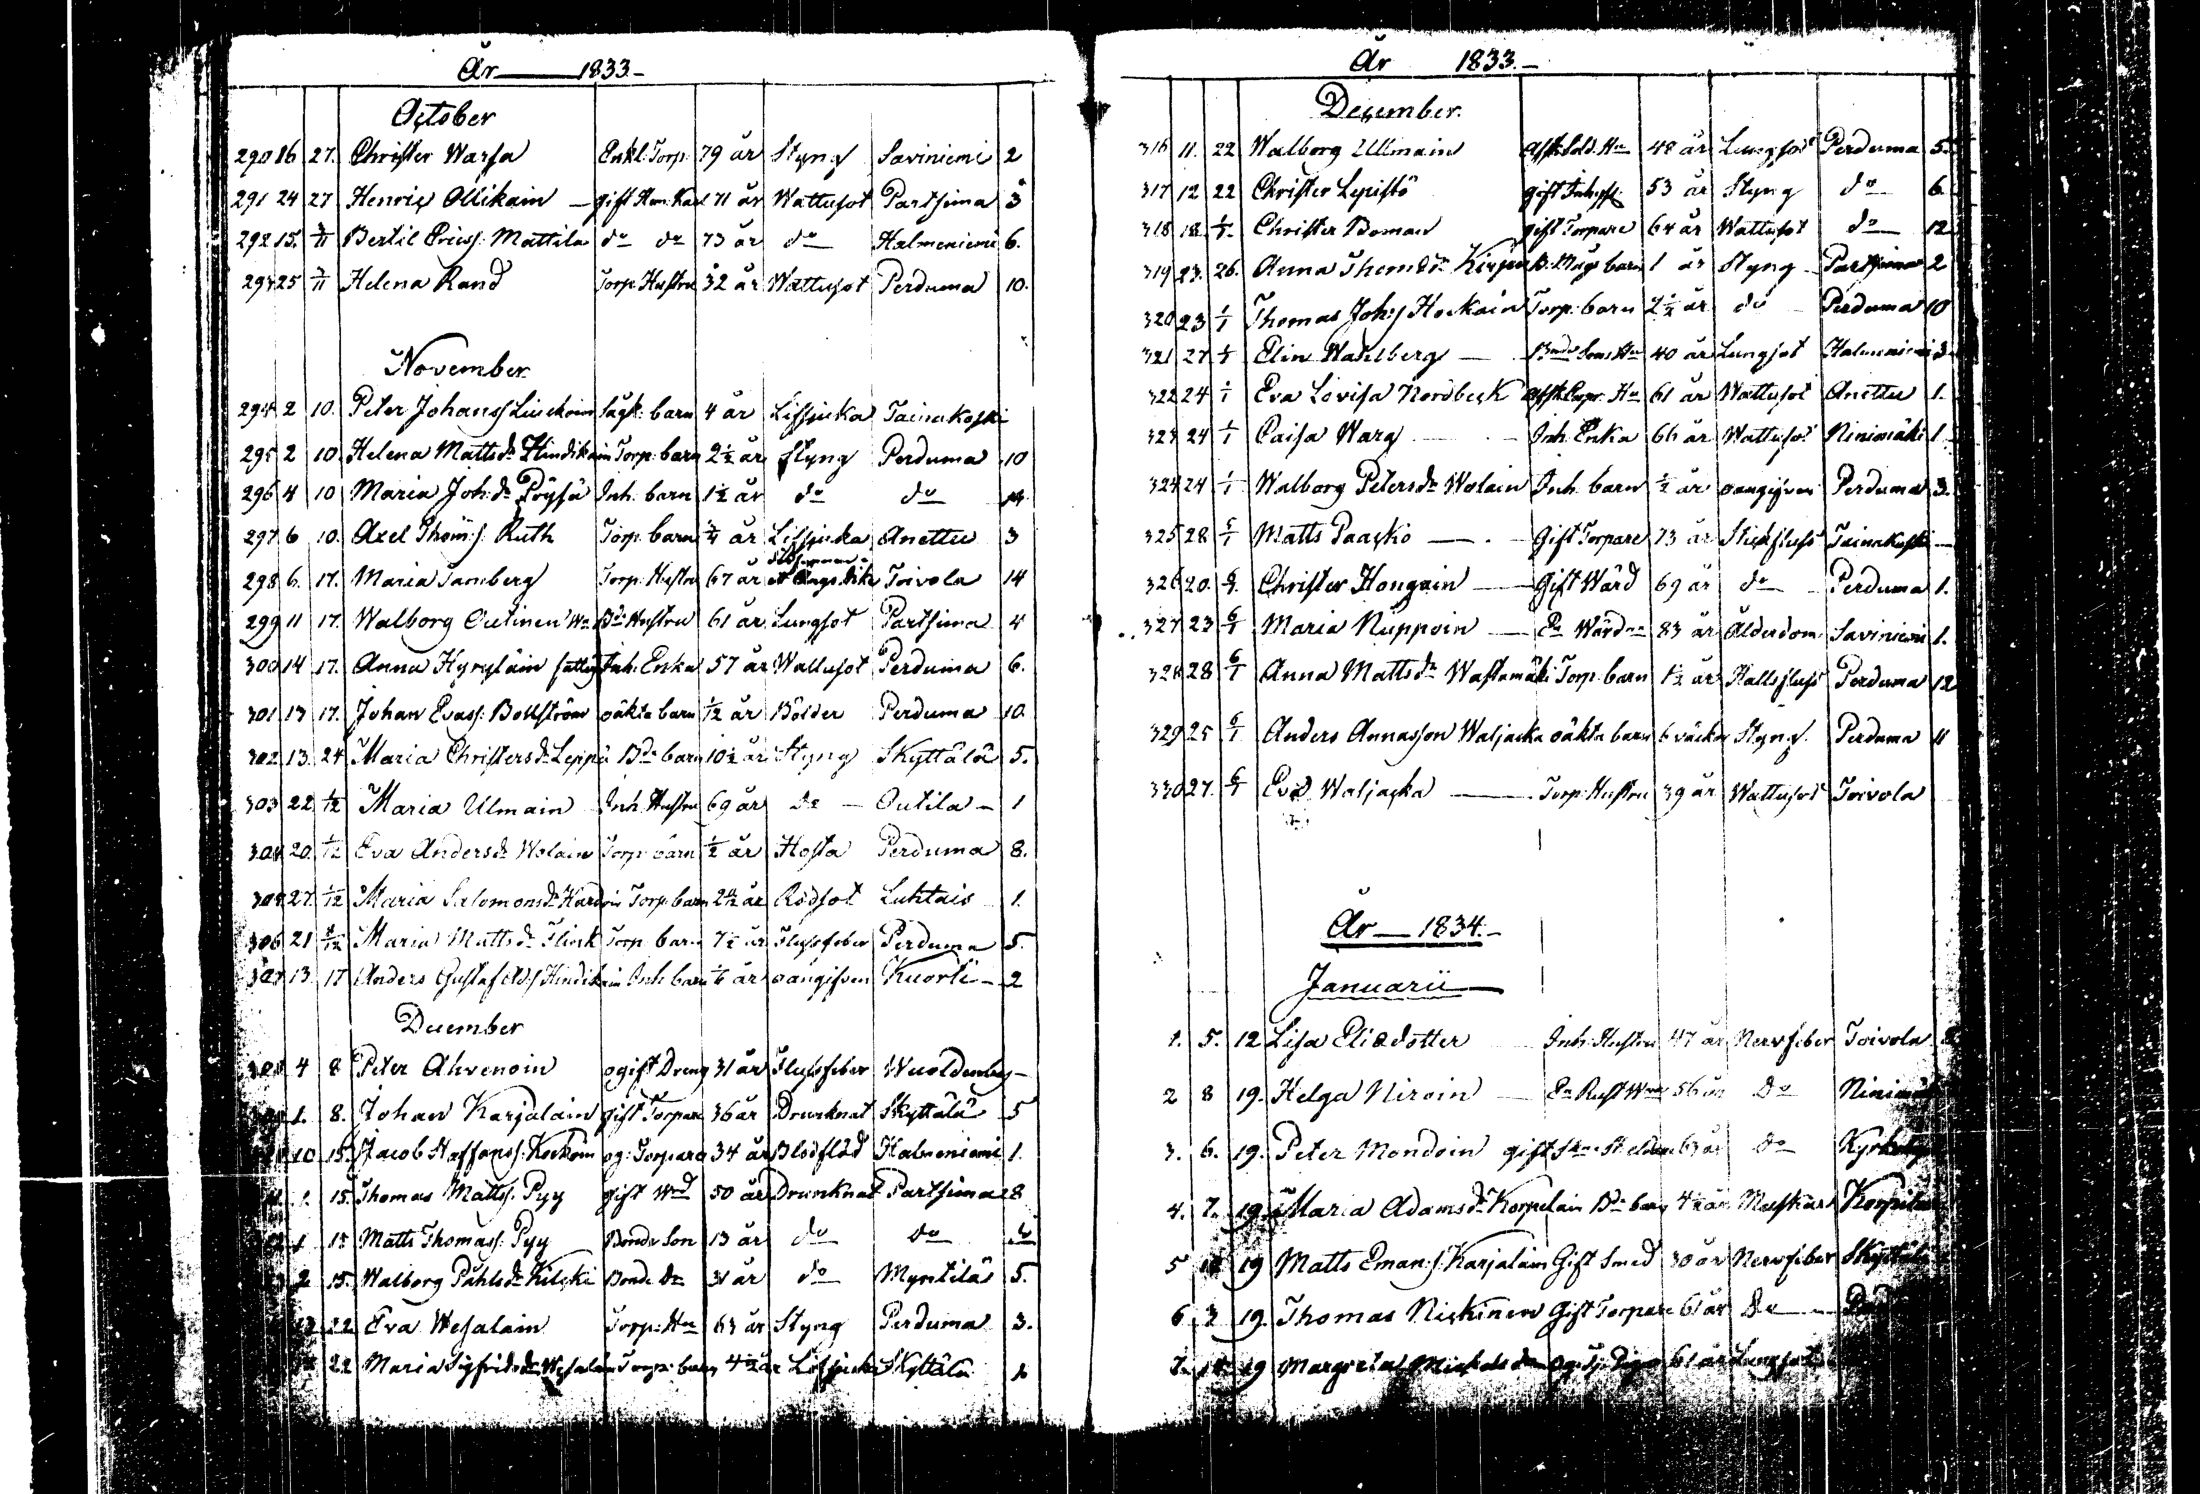 År 1833.
October
290 16 27. Christer Warsa Enkl. Torp. 79 år Styng Saviniemi 2
291 24 27 Henric Ollikain gift 71 år Wattusot Partsima 3
292 15. 3/11 Bertil Ericss. Mattila do do 73 år do Halmeniemi 6.
293 25 3/11 Helena Rand Torp. Hustru 32 år Wattusot Perduma 10.
November
294 2 10. Peter Johanss. barn 4 år Lissjuka Tainakoski
295 2 10. Helena Mattsdr Hindikain Torp. barn 2 1/2 år styng Perduma 10
296 4 10 Maria Joh:dr Pöysä Inh. barn 1 1/2 år do do 14
297 6 10. Axel Thom:s. Ruth Torp. barn år Lissjuka Anettu 3
298 6. 17. Maria Tamberg Torp. Hustru 67 år Toivola 14
299 11 17. Walborg Outinen Bd. Hustru 61 år Lungsot Partsima 4
300 14 17. Anna Hyryläin Inh. Enka 57 år Wattusot Perduma 6.
301 13 17. Johan Evass. Bollström oäkta barn 1/12 år Bölder Perduma 10.
302 13. 24 Maria Christersdr Leppä Bde barn 10 1/2 år Styng Skyttälä 5.
303 22 1/12 Maria Ulmain Inh. Hustru 69 år do Outila 1
304 20 1/12 Eva Andersdr Wolain Torp. barn 1/2 år Hosta Perduma 8.
305 27. 1/12 Maria Salomonsdr Torp. barn år Rödsot Luhtais 1.
306 21 8/12 Maria Mattsdr Flink Torp. barn 7 1/2 år Flussfeber Perduma 5.
307 13. 17 Anders Gustaf Ad:s. Hindikain Inh. barn 1/6 år oangifven Kuorti 2
December
308 4 8 Peter Ahvenoin ogift Dreng 31 år Flussfeber
1. 8. Johan Karjalain gift Torpare 36 år Drunknat Skyttälä 5
10 15. Jacob Staffanss. Kockoin og: Torpare 34 år Blodflöd Halmeniemi 1.
1 15. Thomas Matts. Pyy gift 50 år Drunknat Partsima 28
1 15 Matts Thomass. Pyy Bonde Son 13 år do do do
2 15. Walborg Påhlsdr Kilski Bonde dr 31 år do Myntilä 5.
13 22 Eva Wesalain Torp: Hu 63 år Styng Perduma 3.
22 Maria Sigfridsdr Wesalain Torp: barn 4 1/2 år Lissjuka Skyttälä 1
År 1833.
December.
316 11. 22 Walborg Ullmain Afsk. Sold. Hu 48 år Lungsot Perduma 5.
317 12 22 Christer Lepistö gift 53 år Styng do 6.
318 18. 1/1 Christer Boman gift Torpare 64 år Wattusot do 12.
319 23. 26. Anna Thomædr barn 1 år Styng Partsima 2
320 23 1/1 Thomas Joh:s. Hockain Torp: barn 2 1/2 år do Perduma 10
321 27 1/1 Elin Wahlberg Bonde Sons Hu 40 år Lungsot Halmeniemi 3
322 24 1/1 Eva Lovisa Nordbeck Afsk. Hu 61 år Wattusot Anettu 1.
323 24 1/1 Caisa Warg Inh. Enka 66 år Wattusot Ninimäki 1
324 24 1/1 Walborg Petersdr Wolain Inh. barn 1/2 år oangifven Perduma 3.
325 28 6/1 Matts Paasko Gift Torpare 73 år Stickfluss Tainakoski
326 20. 6/1 Christer Hongain Gift Wärd 69 år do Perduma 1.
327 23 6/1 Maria Nuppoin 83 år Ålderdom Saviniemi 1.
328 28 6/1 Anna Mattsdr Wastamäki Torp: barn 1 1/2 år Hallsfluss Perduma 12
329 25 6/1 Anders Annasson Waljacka oäkta barn 6 väckor Styng. Perduma 11
330 27. 6/1 Eva Waljacka Torp: Hustru 39 år Wattusot Toivola
År 1834.
Januarii
1. 5. 12 Lisa Eliædotter Inh: Hustru 47 år Nervfeber Toivola 8
2 8 19. Helga Niroin 56 år Do
3. 6. 19. Peter Mondoin gift 63 år Do
4. 7. 19. Maria Adamsdr Korpelain Bde barn 4 1/2 år
5 19 Matts Eman:s. Karjalain Gift Smed 30 år Nervfeber Skyttälä
6 3 19. Thomas Nickinen Gift Torpare 61 år Do
7. 19 Margreta Mickelsdr 61 år Lungsot